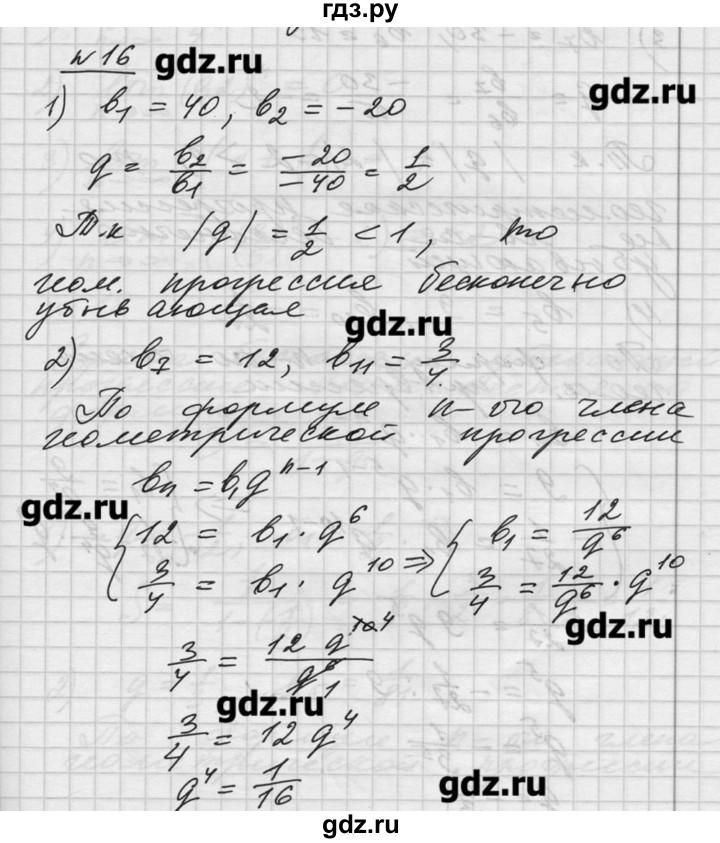 гдз.ру
№16
gdz.ru
gdz.ru
1) b₁ = 40, b₂ = -20
q = b₂/b₁ = -20/-40 = 1/2
Т.к |q| = 1/2 < 1, то
геом. прогрессия бесконечно
убывающая
gdz.ru
2) b₇ = 12, b₁₁ = 3/4.
По формуле n-ого члена
геометрической прогрессии
bₙ = b₁qⁿ⁻¹
gdz.ru
{ 12 = b₁ · q⁶ { b₁ = 12/q⁶
3/4 = b₁ · q¹⁰ ⇒ 3/4 = 12/q⁶ · q¹⁰
gdz.ru
3/4 = 12 q¹⁰ ⁴/q⁶ 1
gdz.ru
3/4 = 12 q⁴
q⁴ = 1/16
gdz.ru
gdz.ru